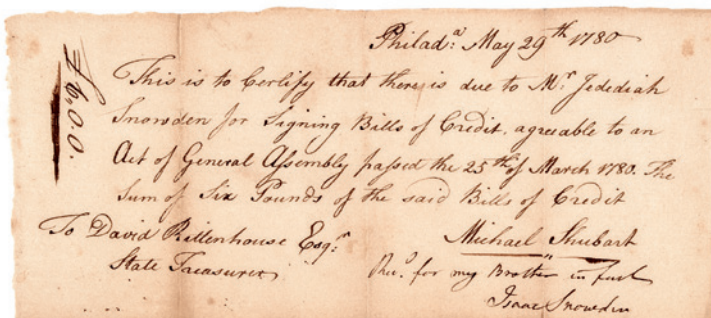 Philad.ª May 29th 1780
£6,0.0.
This is to Certify that there is due to Mr. Jedediah
Snowden for Signing Bills of Credit, agreable to an
Act of General Assembly passed the 25th of March 1780. The
Sum of Six Pounds of the said Bills of Credit
To David Rittenhouse Esqr.
State Treasurer
Michael Shubart
Recd. for my Brother in full
Isaac Snowden